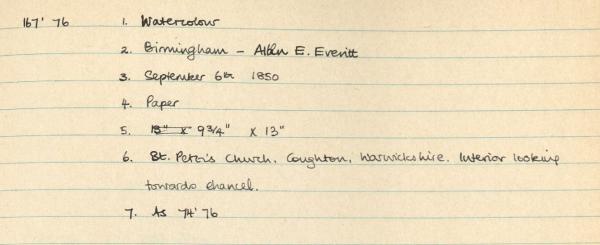 167' 76 1. Watercolour
2. Birmingham - Allen E. Everitt
3. September 6th 1850
4. Paper
5. 13" x 9 3/4" x 13"
6. St. Peter's Church, Coughton, Warwickshire. Interior looking
towards chancel.
7. As 74' 76